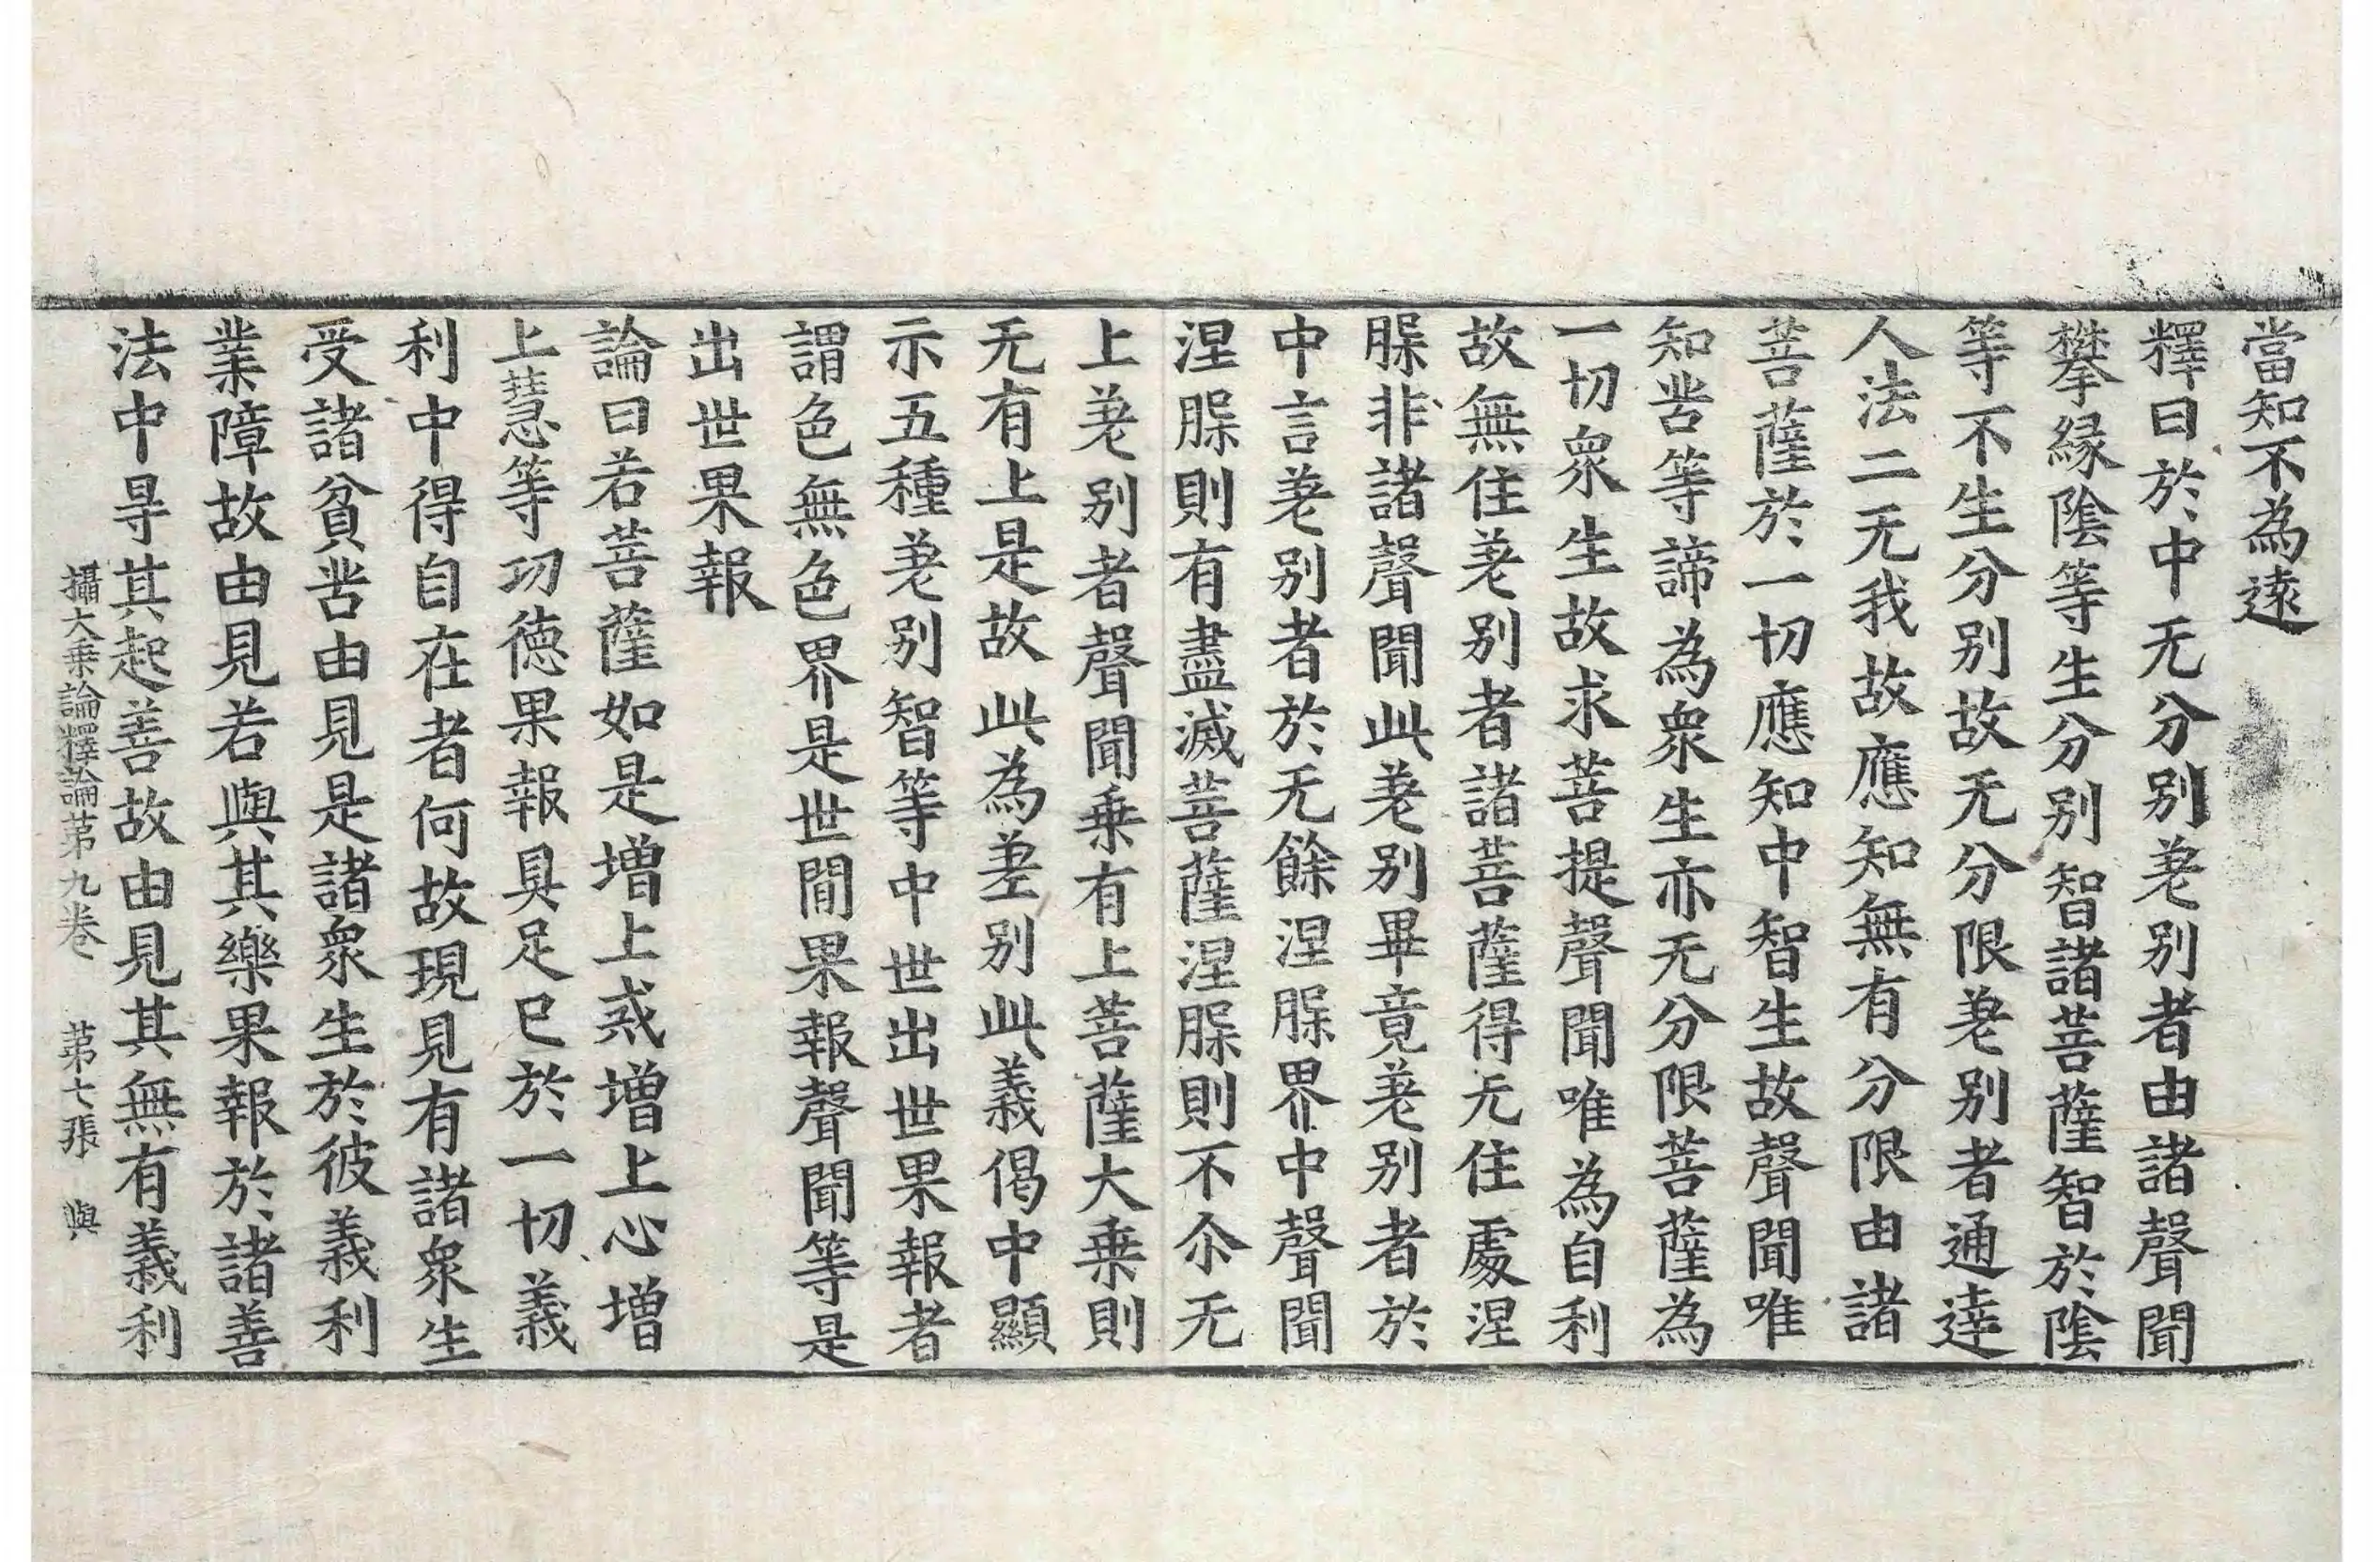 當知不為遠
釋曰於中无分別差別者由諸聲聞
攀緣陰等生分別智諸菩薩智於陰
等不生分別故无分限差別者通達
人法二无我故應知無有分限由諸
菩薩於一切應知中智生故聲聞唯
知苦等諦為衆生亦无分限菩薩為
一切衆生故求菩提聲聞唯為自利
故無住差別者諸菩薩得无住處涅
槃非諸聲聞此差別畢竟差別者於
中言差別者於无餘涅槃界中聲聞
涅槃則有盡滅菩薩涅槃則不尒无
上差別者聲聞乗有上菩薩大乗則
无有上是故此為差別此義偈中顯
示五種差別智等中世出世果報者
謂色無色界是世間果報聲聞等是
出世果報
論曰若菩薩如是增上戒增上心增
上慧等功德果報具足已於一切義
利中得自在者何故現見有諸衆生
受諸貧苦由見是諸衆生於彼義利
業障故由見若與其樂果報於諸善
法中㝵其起善故由見其無有義利
攝大乗論釋論第九卷　第七張　與